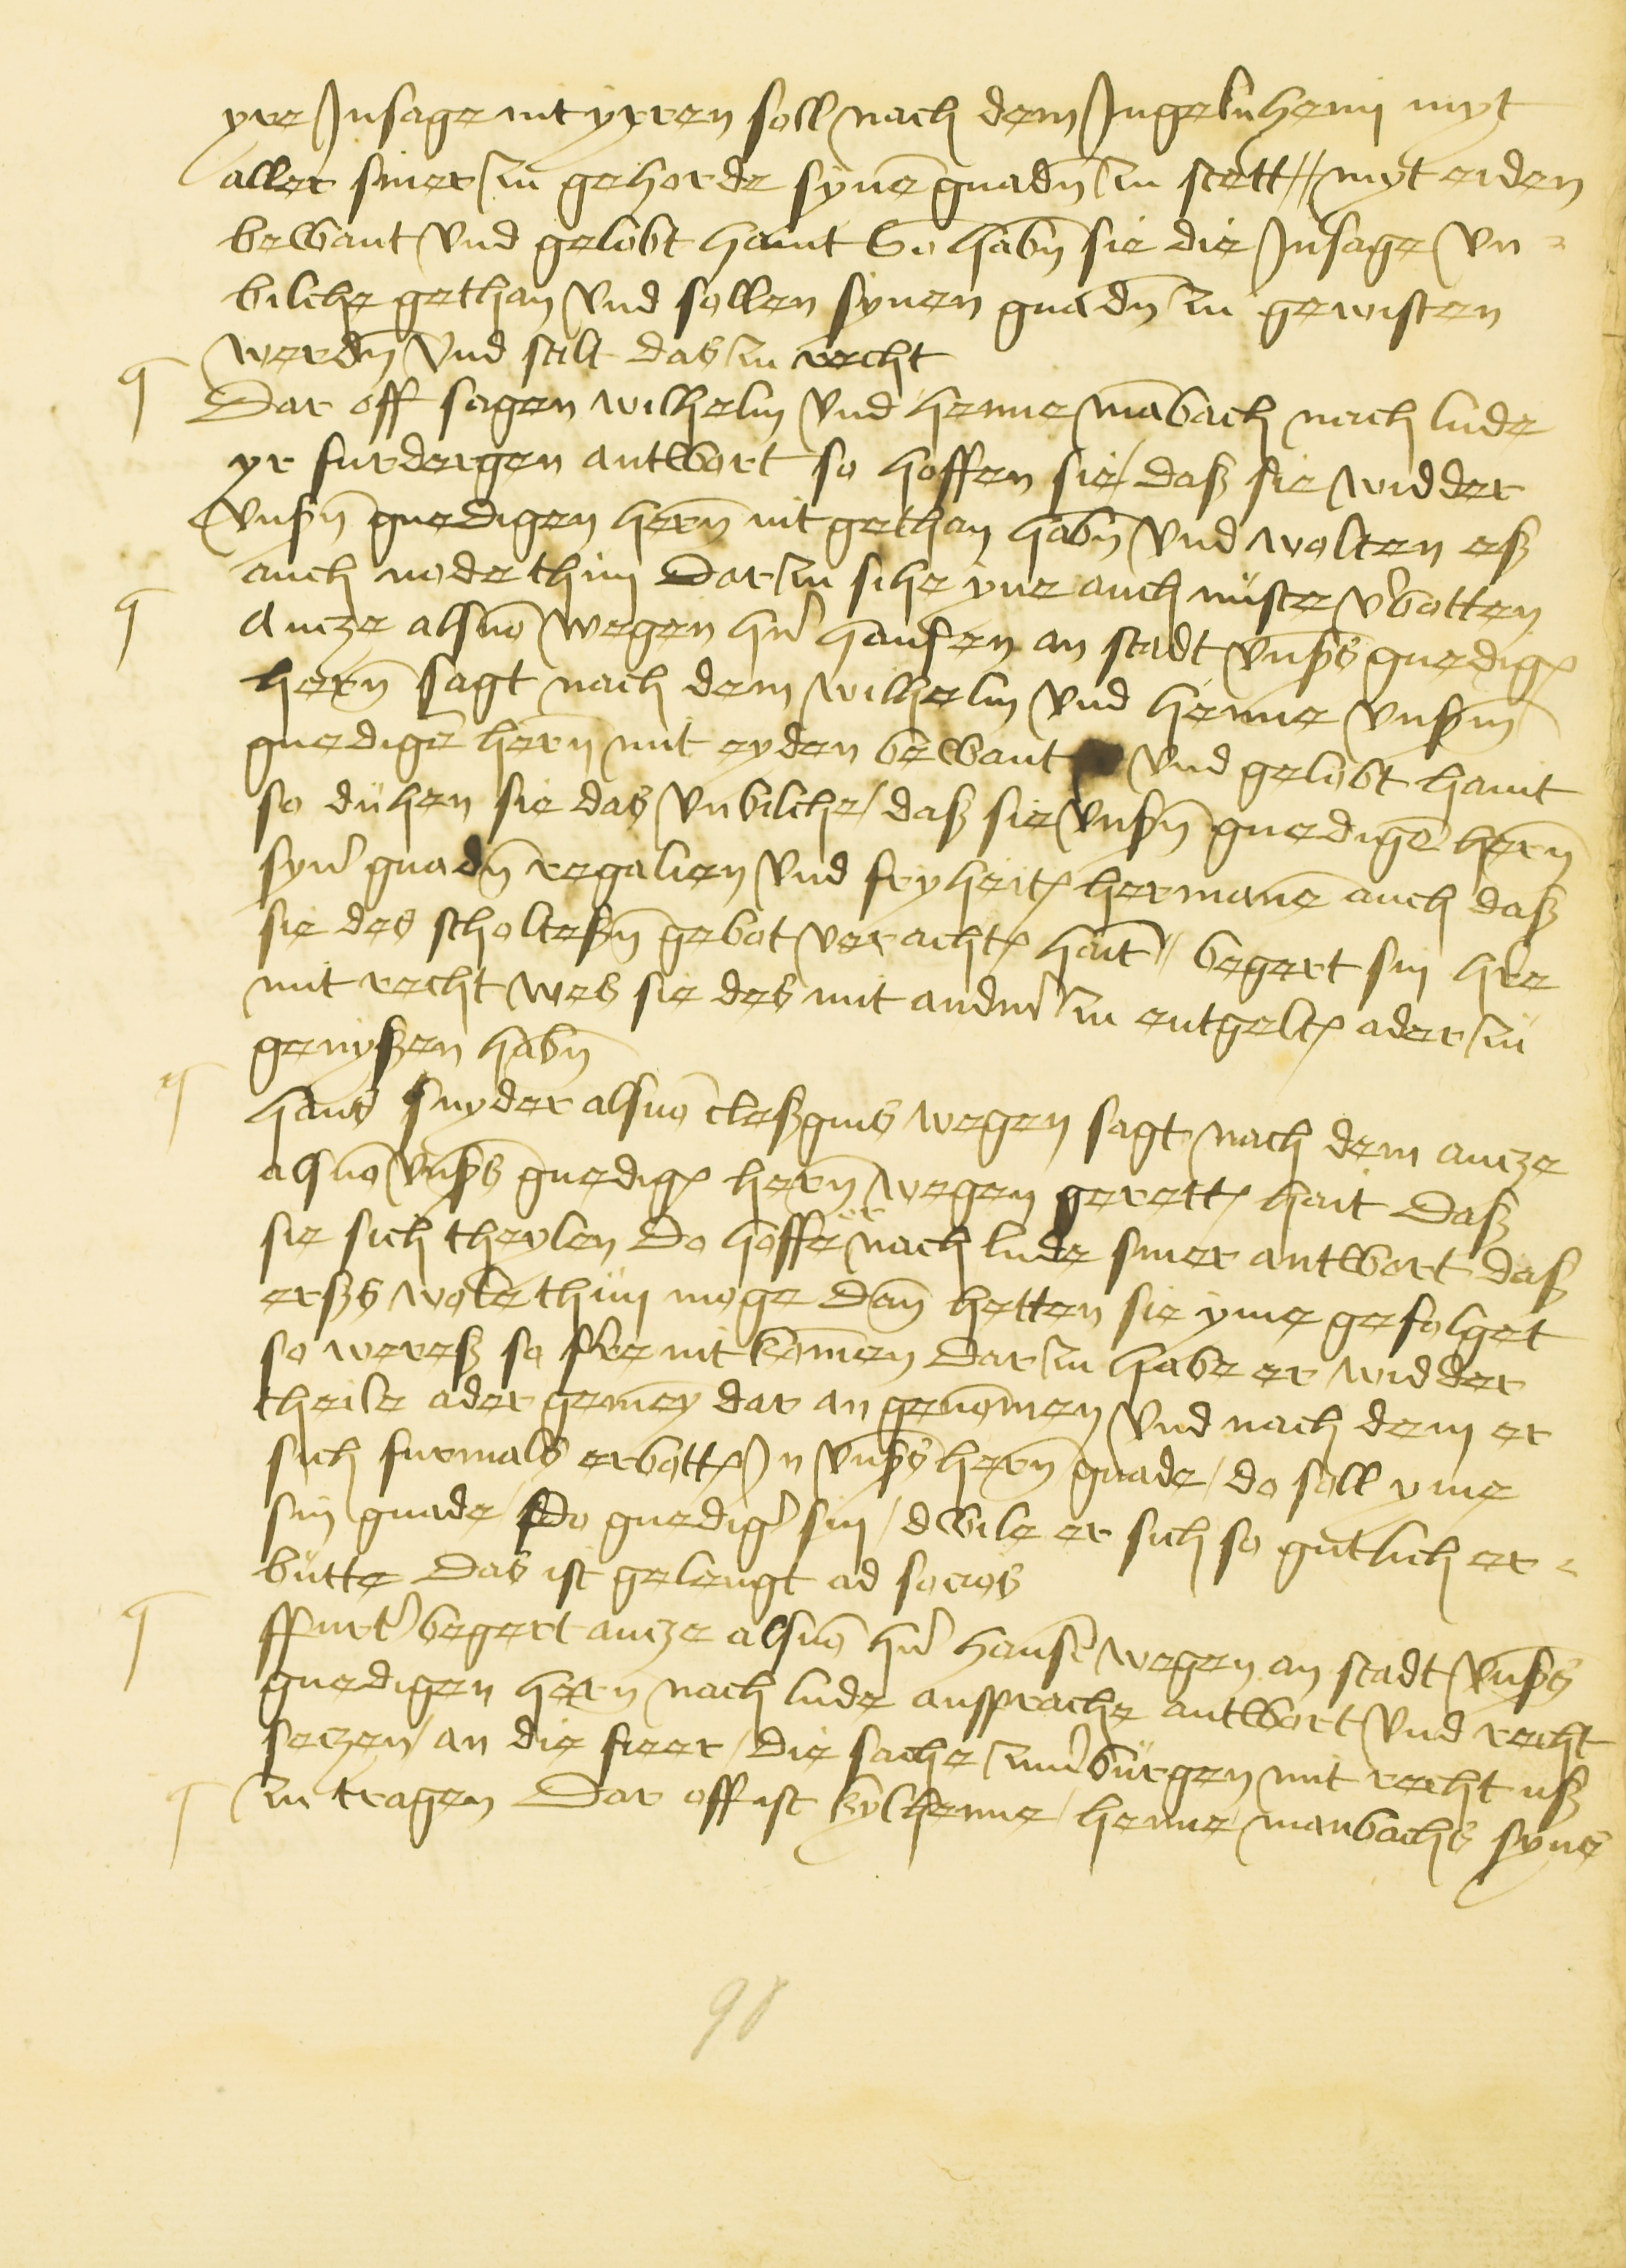 yre Insage nit yrren soll nach dem Ingelnheim myt
aller siner zu gehorde synē gnadn̄ zu stett // myt eiden
bewant vnd gelobt haint So habn̄ sie die Insage vn=
bilche gethan vnd sollen synen gnadn̄ zu gewisten
werdn̄ vnd stilt das zu recht
Dar off sagen wilhelm vnd henne manbach nach lude
yr furdergen antwort so hoffen sie / daß sie widder
vnßn̄ gnedigen hern̄ nit gethan habn̄ vnd wolten eß
auch node thun Dar zu sihe yne auch nuste v'botten
Antze alsuō wegen hr̄ hansen an stadt vnßs gnedigen
hern̄ sagt nach dem wilhelm vnd henne vnßm̄
gnedigē hern̄ mit eyden bewant vnd gelobt haint
so duhen sie das vnbilche / daß sie vnßn̄ gnedigē hern̄
syn' gnadn̄ regalien vnd fryheiten hermanē auch daß
sie des scholteßn̄ gebot verachten hait // begert sin hr̄e
mit recht wes sie des mit andn' zu entgelten ader zu
genyßen habn̄
hans snyder alsuō cleßgins wegen sagt nach dem antze
alsuō vnßs gnedigen hern̄ wegen geretten hait Daß
sie sich theylen Do hoffe er nach lude siner antwort daß
erßs wole thun moge Dan̄ hetten sie yme gefolget
so wereß so fre nit komen̄ Dar zu habe er widder
theile ader gemey dar an genomen̄ vnd nach dem er
sich furmals erbotten In vnßs hern̄ gnade / do soll yme
sin gnade / Do gnedig' sin / dwile er sich so gutlich er=
butte Das ist gelengt ad socios
ffurt' begert antze alsuō hr̄ hansē wegen an stadt vnßs
gnedigen hern nach lude ansprache antwort vnd recht
setzen / an die fieer / die sache zun' burgen mit recht uß
zu tragen Dar off ist kylhenne / henne manbachs syns
98